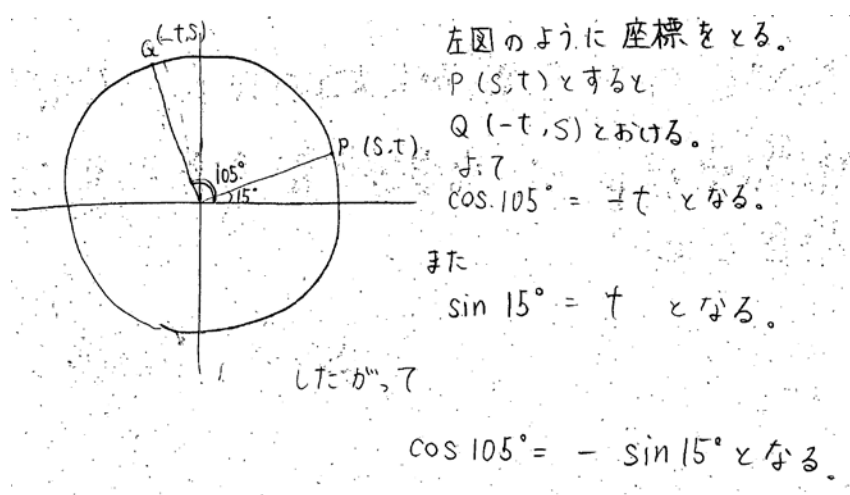 Q(-t,S)
P (S,t)
105°
15°
左図のように座標をとる。
P (S,t) とすると
Q (-t,S) とおける。
よって
cos 105° = -t となる。
また
sin 15° = t となる。
したがって
cos 105° = - sin 15° となる。